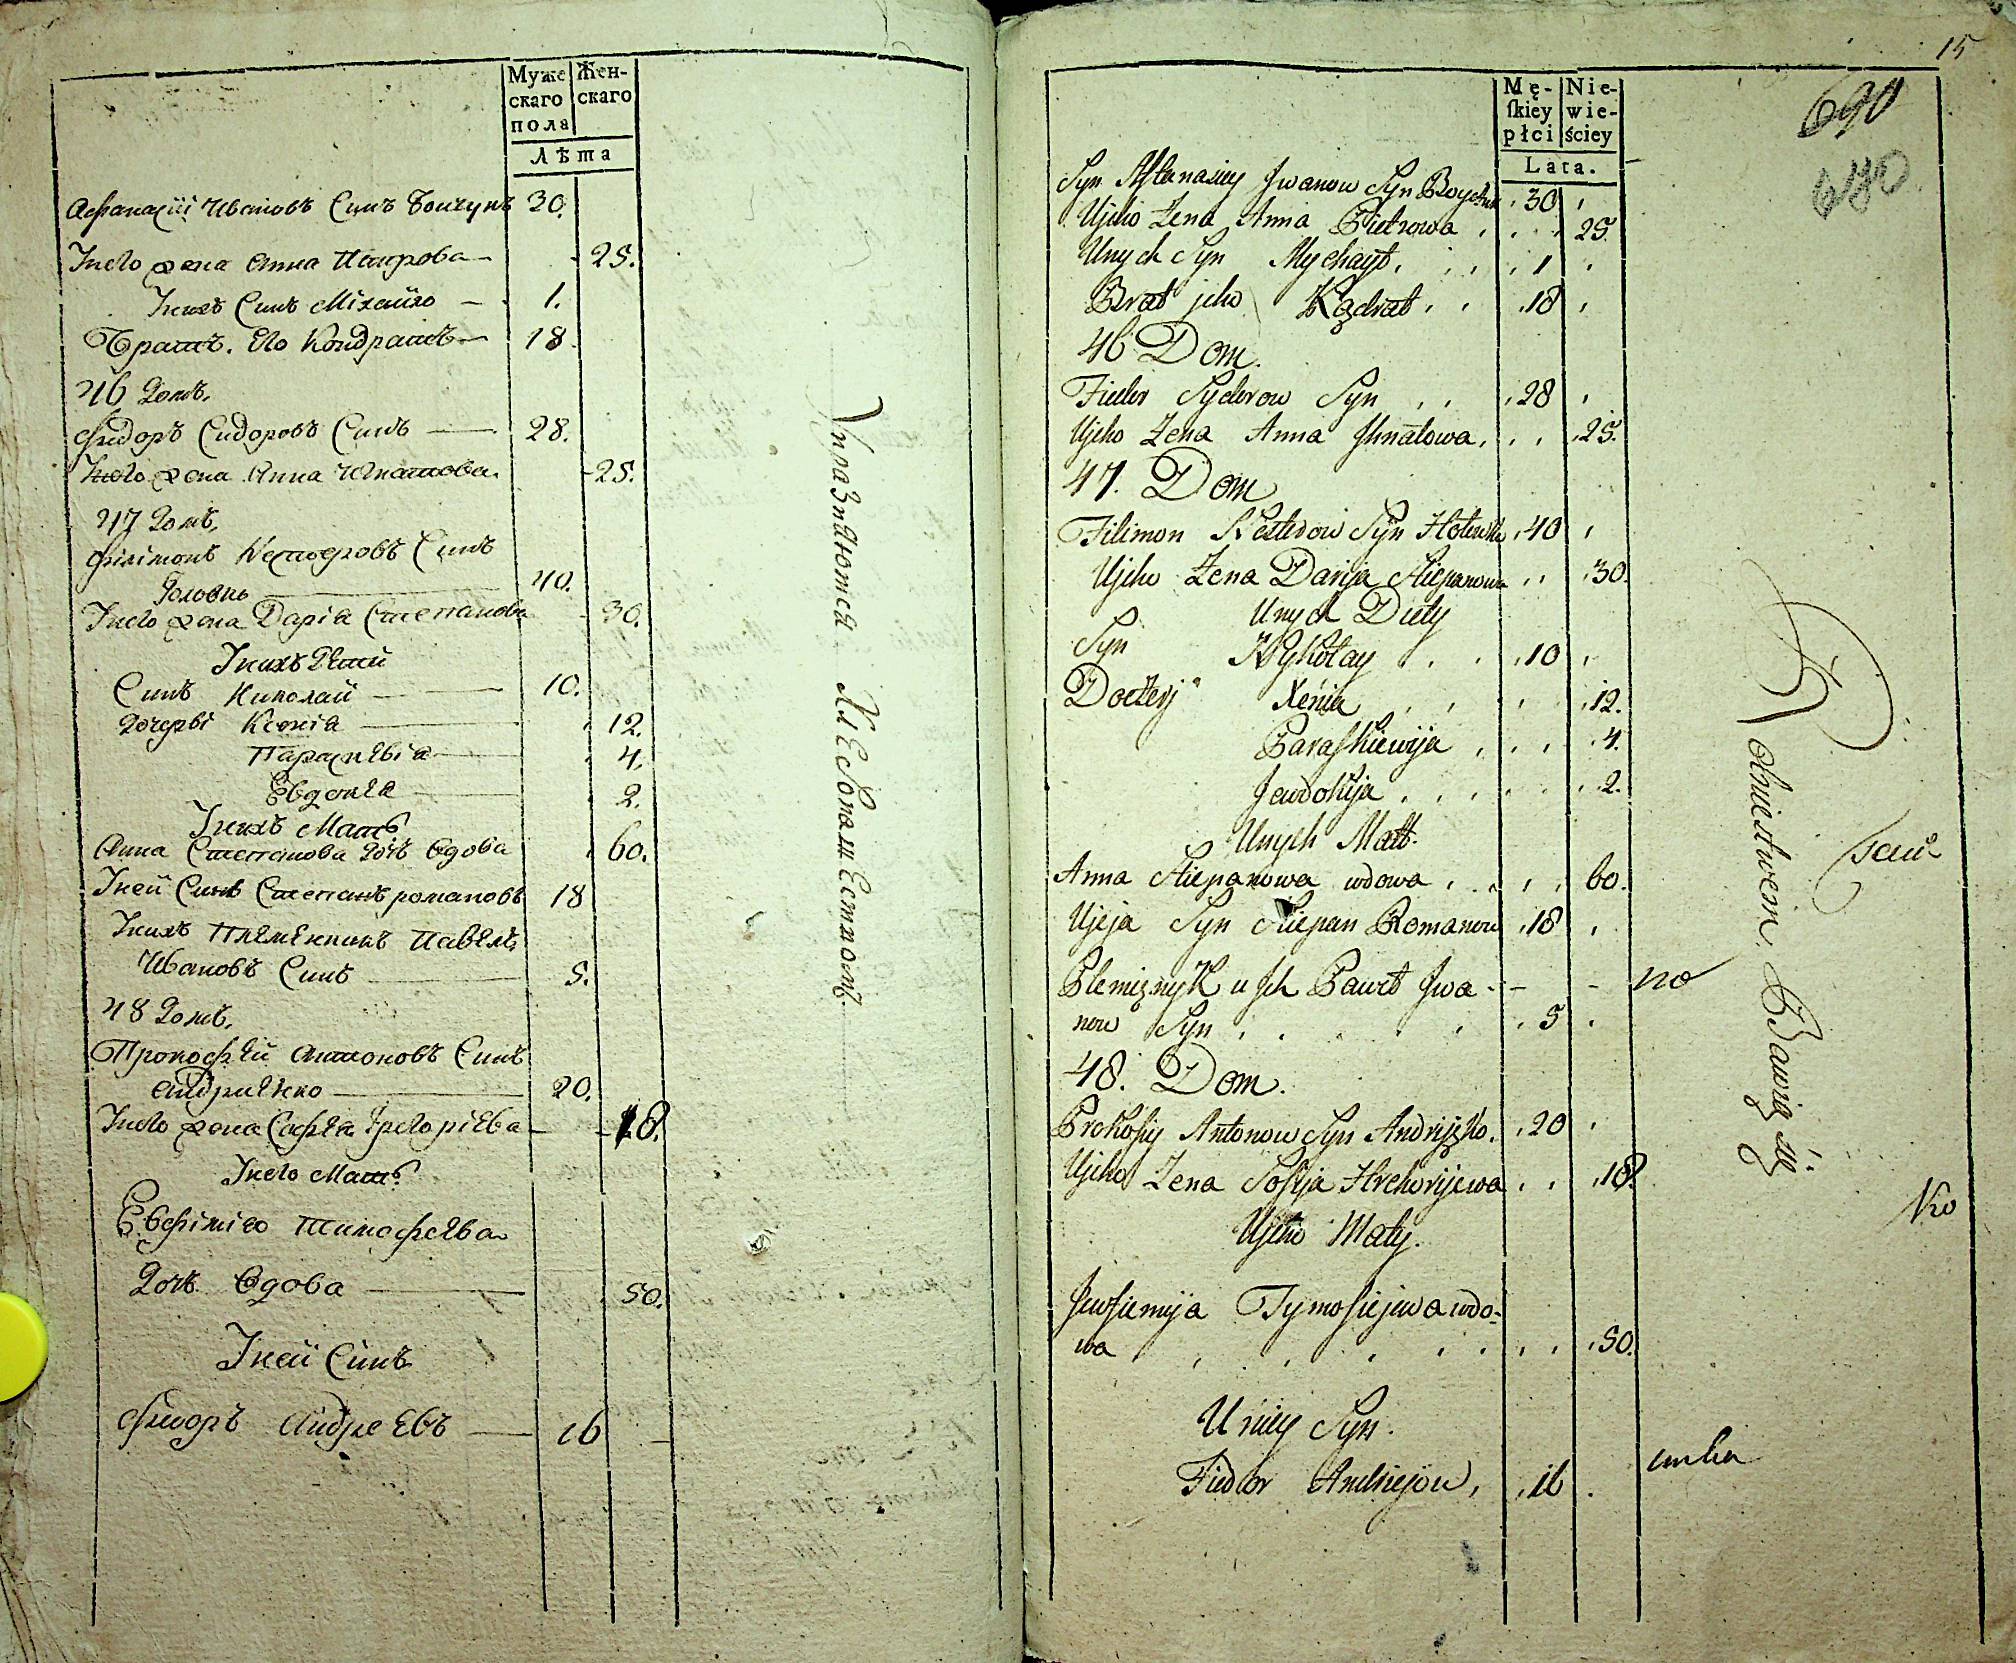 Муже
скаго
пола
Жен-
скаго
Лѣта
Афанасій Ивановъ Синъ Бойчунъ 30.
Унего жена Анна Пайрова 25.
Унихъ Синъ Міхайло 1.
Братъ Его Кондратъ 18
46 Домъ.
Фидоръ Сидоровъ Синъ 28.
Унего жена Анна Игнатова 25.
47 Домъ,
Филімонъ Нестеровъ Синъ
Головко 40.
Унего жена Даріа Степанова 30.
Унихъ Дети
Синъ Николай 10.
Дочерѣ Ксеніа 12.
Параскевіа 4.
Евдокеа 2.
Унихъ Мать
Анна Степанова Дочь Вдова 60.
Уней Синъ Степанъ романовъ 18
Унихъ Племенникъ Павелъ
Ивановъ Синъ 5.
48 Домъ,
Прокофей Антоновъ Синъ
Андриенко 20.
Унего жена Софеа Григоріева 18.
Унего Мать
Евфиміа Тимофеева
Дочь Вдова 50.
Уней Синъ
Фидоръ Андреевъ 16
Упражняются Хлебопашествомъ.
15
690
680
Mę-
skiey
płci
Nie-
wie-
ściey
Lata.
Syn Aftanasiey Jwanow Syn Boyczun 30
Ujeho Żena Anna Pietrowa 25.
Unych Syn Mychaył 1
Brat jeho Kądrat 18
46 Dom.
Fieder Syderow Syn 28
Ujeho Żena Anna Jhnatowa 25.
47. Dom
Filimon Nesterow Syn Hołowko 40
Ujeho Żena Darija Stiepanowa 30.
Unych Diety
Syn Nykołay 10
Doczerj Xenia 12.
Paraskiewija 4.
Jewdokija 2.
Unych Matt.
Anna Stiepanowa wdowa 60.
Ujeja Syn Stiepan Romanow 18
Plemięnyk u Jch Paweł Jwa-
now Syn 5
48. Dom.
Prokofiy Antonow Syn Andrijęko. 20
Ujeho Żena Sofija Hrehorijewa 18.
Ujeho Maty.
Jewfiemija Tymofiejewa wdo-
wa 50.
Uniey Syn.
Fiedor Andriejow, 16
no
Rolnictwem Bawią się
Nro